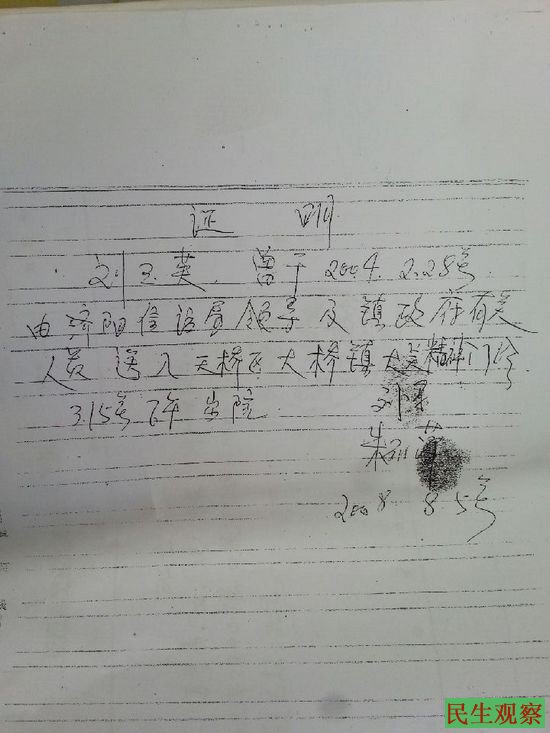 证 明
刘玉英.曾于2004.2.28号
由济阳信访局领导及镇政府有关
人员送入天桥区大桥镇大吴精神门诊.
3.15号下午出院
刘
朱
2008 8.5号
民生观察